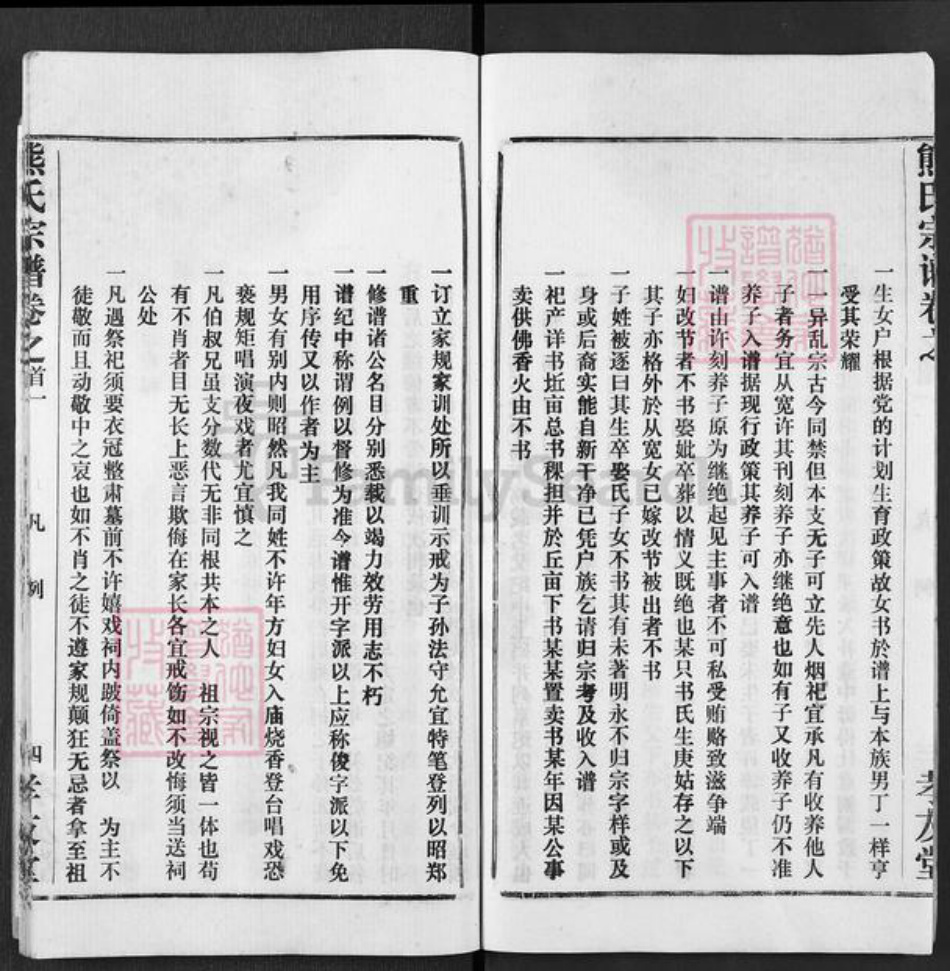 熊氏宗谱卷之
一生女户根据党的计划生育政策故女书於谱上与本族男丁一样亨
受其荣耀
一异乱宗古今同禁但本支无子可立先人烟祀宜承凡有收养他人
子者务宜从宽许其刊刻养子亦继绝意也如有子又收养子仍不准
养子入谱据现行政策其养子可入谱
一谱由许刻养子原为继绝起见主事者不可私受贿赂致滋争端
一妇改节者不书娶妣卒葬以情义既绝也某只书氏生庚姑存之以下
其子亦格外於从宽女已嫁改节被出者不书
一子姓被逐曰其生卒娶氏子女不书其有未著明永不归宗字样或及
身或后裔实能自新干净已凭户族乞请归宗考及收入谱
一祀产详书坵亩总书稞担并於丘亩下书某某置卖书某年因某公事
卖供佛香火由不书
孝友堂
一订立家规家训处所以垂训示戒为子孙法守允宜特笔登列以昭郑
重
一修谱诸公名目分别悉載以竭力效劳用志不朽
一谱纪中称谓例以督修为准今谱惟开字派以上应称俊字派以下免
用序传又以作者为主
一男女有别内则昭然凡我同姓不许年方妇女入庙烧香登台唱戏恐
亵规矩唱演夜戏者尤宜慎之
一凡伯叔兄虽支分数代无非同根共本之人 祖宗视之皆一体也苟
有不肖者目无长上恶言欺侮在家长各宜戒饬如不改悔须当送祠
公处
一凡遇祭祀须要衣冠整肃墓前不许嬉戏祠内跛倚盖祭以 为主不
徒敬而且动敬中之哀也如不肖之徒不遵家规颠狂无忌者拿至祖
熊氏宗谱卷之首一 凡例 四 孝友堂
FamilySearch